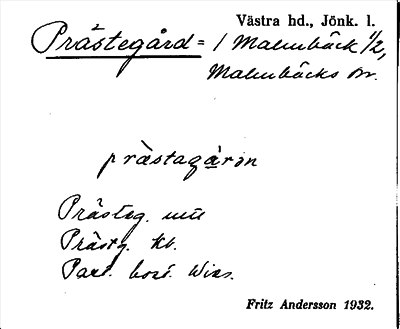 Västra hd., Jönk. l.
Prästegård = 1 Malmbäck 1/2,
Malmbäcks sn.
pràstagárən
Prästeg.
Prästg. Kb.
Past. bost. Wiks.
Fritz Andersson 1932.